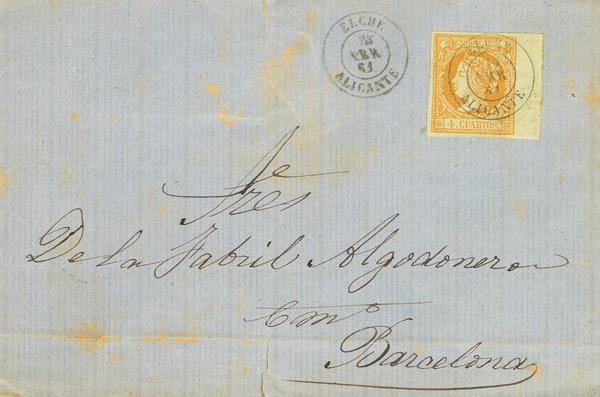 ELCHE
23
ABR
61
ALICANTE
4 CUARTOS.
ALICANTE
Sres
De la Fabril Algodonera
Barcelona